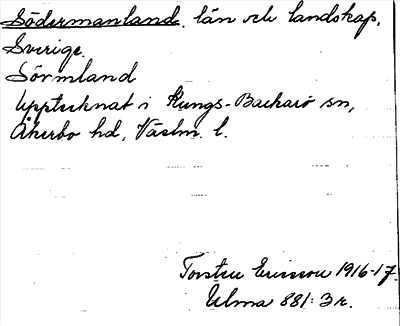 Södermanland. län och landskap,
Sverige.
Sörmland
Upptecknat i Kungs-Barkarö sn,
Åkerbo hd, Västm. l.
Torsten Ericsson 1916-17.
Ulma 881:3 r.